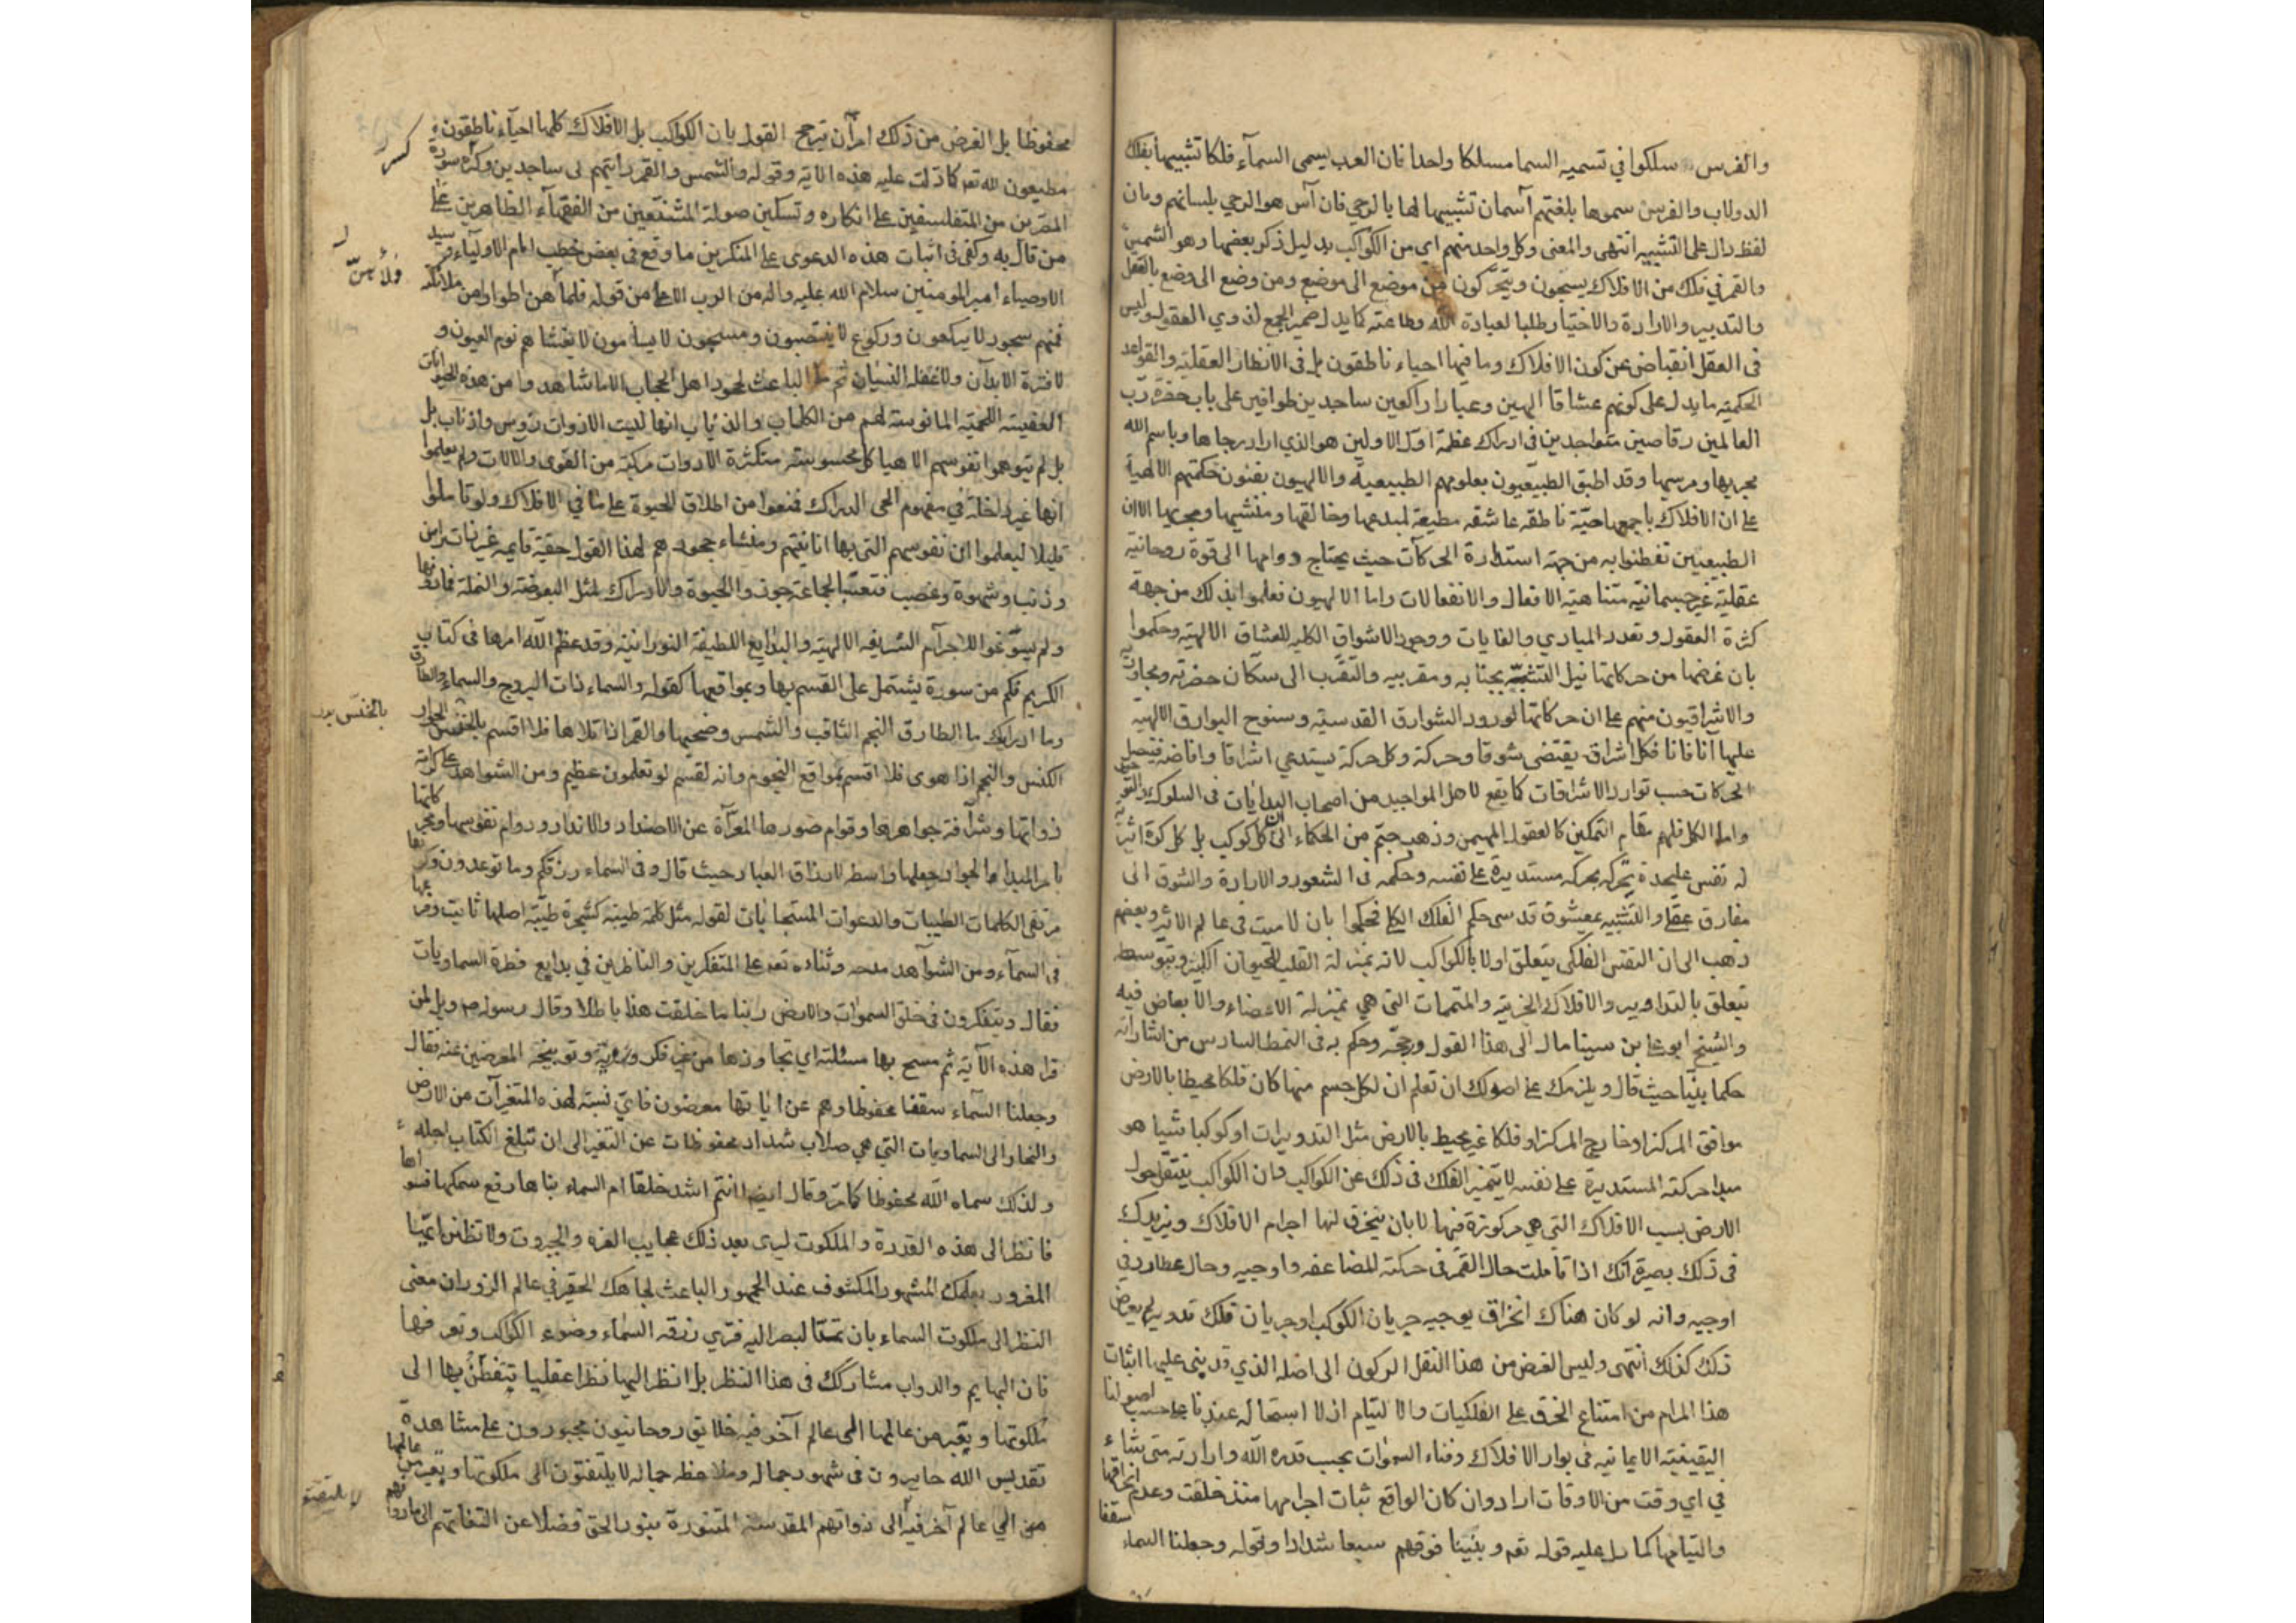 والفرس سلكوا في تسميه السما مسلكا واحدا فان العرب يسمى السمآء فلكا تشبيها بفلك
الدولاب والفرس سموها بلغتهم آسمان تشبيها لها بالرحي فان آس هو الرحي بلسانهم ومان
لفظ دال على التشبيه انتهى والمعنى وكل واحد منهم اي من الكواكب بدليل ذكر بعضها وهو الشمس
والقمر في فلك من الافلاك يسبحون ويتحركون من موضع الى موضع ومن وضع الى وضع بالعقل
والتدبير والارادة والاختيار طلبا لعبادة الله وطاعته كما يدل ضمير الجمع لذوي العقول وليس
في العقل انقباض عن كون الافلاك وما فيها احياء ناطقون بل في الانظار العقلية والقواعد
الحكميه ما يدل على كونهم عشاقا الهين وعبادا راكعين ساجدين طوافين على باب حضرة رب
العالمين رقاصين متواجدين في ادراك عظمة اول الاولين هو الذي ادار رحاها وباسم الله
مجريها ومرسيها وقد اطبق الطبيعيون بعلومهم الطبيعية والالهيون بفنون حكمتهم الالهية
على ان الافلاك باجمعها حية ناطقه عاشقه مطيعة لمبدعها وخالقها ومنشيها ومجريها الا ان
الطبيعيين تفطنوا به من جهة استدارة الحركات حيث يحتاج دوامها الى قوة روحانية
عقلية غير جسمانية متناهية الافعال والانفعالات واما الالهيون فعلموا ذلك من جهة
كثرة العقول وتعدد المبادي والغايات ووجود الاشواق الكليه للعشاق الالهية وحكموا
بان غرضها من حركاتها نيل التشبه بجنابه ومقربيه والتقرب الى سكان حضرته ومجاوريه
والاشراقيون منهم على ان حركاتها لورود الشوارق القدسية وسنوح البوارق الالهية
عليها آنا فانا فكل اشراق يقتضى شوقا وحركة وكل حركة يستدعي اشراقا وافاضة فيتصل
الحركات حسب توارد الاشراقات كما يقع لاهل المواجيد من اصحاب البدايات في السلوك
واما الكل فلهم مقام التمكين كالعقول المهيمن وذهب جم من الحكماء الى ان كل كوكب بل كل كرة اثيرية
له نفس عليحدة يحركه بحركه مستديرة على نفسه وحكمه في الشعور والارادة والشوق الى
مفارق عقلي والتشبه بمعشوق قدسى حكم الفلك الكلي فحكموا بان لا ميت في عالم الاثير وبعضهم
ذهب الى ان النفس الفلكي يتعلق اولا بالكواكب لانه بمنزلة القلب للحيوان الكبير وبتوسطه
يتعلق بالتداوير والافلاك الجزيية والمتممات التي هي بمنزلة الاعضاء والابعاض فيه
والشيخ ابو علي بن سينا مال الى هذا القول ورجحه وحكم به في النمط السادس من اشاراته
حكما بتيا حيث قال ويلزمك على اصولك ان تعلم ان لكل جسم منها كان فلكا محيطا بالارض
موافق المركز او خارج المركز او فلكا غير محيط بالارض مثل التدويرات او كوكبا شيا هو
مبدا حركته المستديرة على نفسه لا يتميز الفلك في ذلك عن الكواكب وان الكواكب ينتقل حول
الارض بسبب الافلاك التي هي مركوزة فيها لا بان ينخرق لها اجرام الافلاك ويزيدك
في ذلك بصيرة انك اذا تاملت حال القمر في حركته المضاعفه واوجيه وحال عطارد في
اوجيه وانه لو كان هناك انخراق يوجبه جريان الكوكب او جريان فلك تدويره لم يعرض
ذلك كذلك انتهى وليس الغرض من هذا النقل الركون الى اصله الذي قد بنى عليها اثبات
هذا المرام من امتناع الخرق على الفلكيات والالتيام اذ لا استحالة عندنا على حسب اصولنا
اليقينية الايمانيه في بوار الافلاك وفناء السموات بحسب قدرة الله وارادته متى يشاء
في اي وقت من الاوقات اراد وان كان الواقع ثبات اجرامها منذ خلقت وعدم انخراقها
والتيامها كما دل عليه قوله تعه وبنينا فوقهم سبعا شدادا وقوله وجعلنا السماء سقفا
محفوظا بل الغرض من ذلك امران ترجح القول بان الكواكب بل الافلاك كلها احياء ناطقون
مطيعون لله تعه كما دلت عليه هذه الاية وقوله والشمس والقمر رايتهم لى ساجدين وكسر سورة
المتفلسفين على انكاره وتسكين صولة المشنعين من الفقهآء الظاهرين على
من قال به وكفى في اثبات هذه الدعوى على المنكرين ما وقع في بعض خطب امام الاولياء وسيد
الاوصياء امير المومنين سلام الله عليه واله من الرب الاعلى من قوله فملأهن اطوارا من ملائكته
فمنهم سجود لا يركعون وركوع لا ينتصبون ومسبحون لا يسأمون لا يغشاهم نوم العيون و
لا فترة الابدان ولا غفلة النسيان ثم الباعث لجحود اهل الحجاب الا ما شاهدوا من هذه الحيوانات
العفينة اللحمية المانوسة لهم من الكلاب والذئاب انها ليست الا ذوات رؤس واذناب بل
بل لم يتوهموا نفوسهم الا هياكل محسوسة متكثرة الادوات مركبة من القوى والآلات ولم يعلموا
انها غير داخلة في مفهوم الحي الدراك فمنعوا من اطلاق الحيوة على ما في الافلاك ولو تاملوا
قليلا ليعلموا ان نفوسهم التي بها انانيتهم ومنشاء جحودهم لهذا القول حقية قايمه غير ذات راس
وذنب وشهوة وغضب فتعسا لجماعة جوزوا الحيوة والادراك لمثل البعوضة والنملة فما دونها
ولم يسوغوا للاجرام الشريفه الالهية والبدايع اللطيفة النورانية وقد عظم الله امرها في كتابه
الكريم فكم من سورة يشتمل على القسم بها وبمواقعها كقوله والسماء ذات البروج والسماء والطارق
وما ادراك ما الطارق النجم الثاقب والشمس وضحيها والقمر اذا تلاها فلا اقسم بالخنس الجوار
الكنس والنجم اذا هوى فلا اقسم بمواقع النجوم وانه لقسم لو تعلمون عظيم ومن الشواهد على كرامة
ذواتها وشرافة جواهرها وقوام صورها المعرآة عن الاضداد والانداد ودوام نفوسها وحركاتها
بامر المبدا الجواد جعلها واسطه لارزاق العباد حيث قال وفى السماء رزقكم وما توعدون وكونها
مرتقى الكلمات الطيبات والدعوات المستجابات لقوله مثل كلمة طيبة كشجرة طيبة اصلها ثابت وفرعها
في السمآء ومن الشوآهد مدحه وثناده تعه على المتفكرين والناظرين في بدايع فطرة السماويات
فقال ويتفكرون في خلق السموات والارض ربنا ما خلقت هذا باطلا وقال رسوله ص ويل لمن
قرا هذه الآية ثم مسح بها سبلته اي تجاوزها من غير فكر وروية وتوبيخه المعرضين عنه فقال
وجعلنا السمآء سقفا محفوظا وهم عن اياتها معرضون فاي نسبة لهذه المتغيرات من الارض
والبخار الى السماويات التي هي صلاب شداد محفوظات عن التغير الى ان تبلغ الكتاب اجله
ولذلك سماه الله محفوظا كما مر وقال ايضا اانتم اشد خلقا ام السماء بناها رفع سمكها فسواها
فانظر الى هذه القدرة والملكوت ليرى بعد ذلك عجايب العزه والجبروت ولا تظنن ايها
المغرور بعلمك المشهور المكشوف عند الجمهور الباعث لجاهك الحقير في عالم الزور ان معنى
النظر الى ملكوت السماء بان تمد البصر اليه فترى زرقه السماء وضوء الكواكب وتعرفها
فان البهايم والدواب مشاركك في هذا النظر بل انظر اليها نظرا عقليا يتفطن بها الى
ملكوتها ويعبر من عالمها الى عالم آخر فيه خلايق روحانيون مجبورون على مشاهدة
تقديس الله حايرون في شهود جماله وملاحظه جماله لا يلتفتون الى ملكوتها ويعبر من عالمها
الى عالم آخر فيه الى ذواتهم المقدسة المتنورة بنور الحق فضلا عن التفاتهم الى ما دونهم